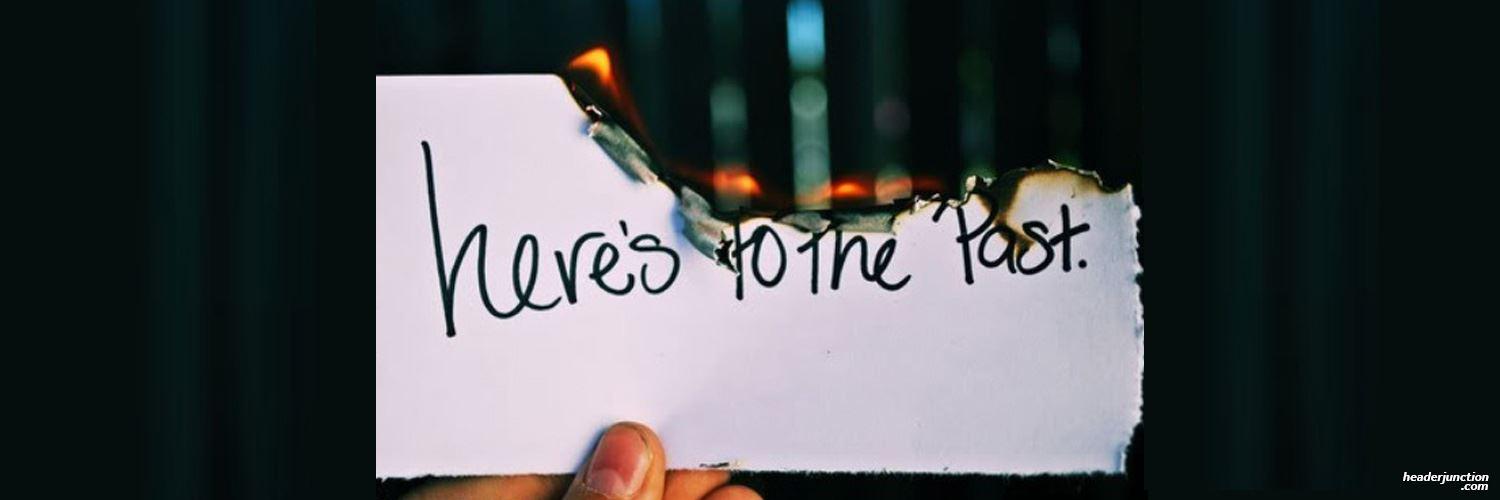 here's to the Past.
headerjunction
.com